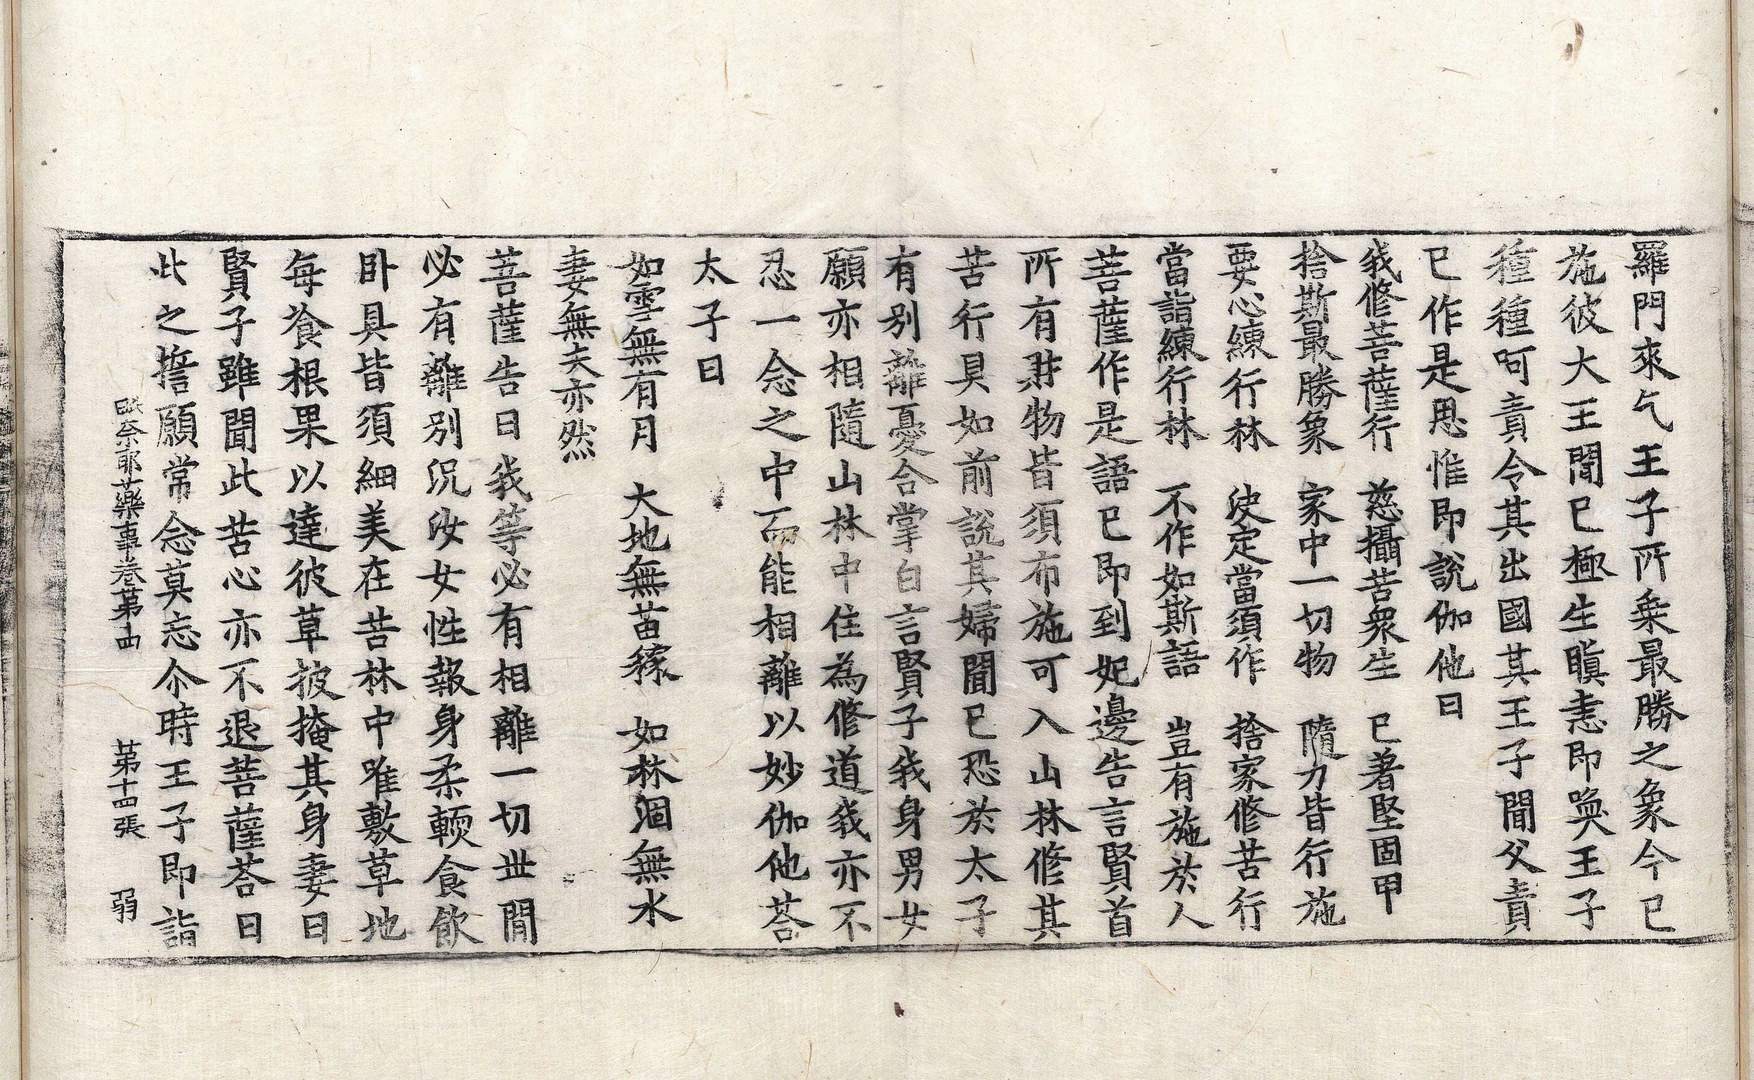 羅門來乞王子所乘最勝之象今已
施彼大王聞已極生瞋恚即喚王子
種種呵責令其出國其王子聞父責
已作是思惟即說伽他曰
我修菩薩行　慈攝苦衆生　已著堅固甲
捨斯最勝象　家中一切物　隨力皆行施
要心練行林　決定當須作　捨家修苦行
當詣練行林　不作如斯語　豈有施於人
菩薩作是語已即到妃邊告言賢首
所有財物皆須布施可入山林修其
苦行具如前說其婦聞已恐於太子
有別離憂合掌白言賢子我身男女
願亦相隨山林中住為修道我亦不
忍一念之中而能相離以妙伽他荅
太子曰
如雪無有月　大地無苗稼　如林涸無水
妻無夫亦然
菩薩告曰我等必有相離一切世間
必有離別況汝女性報身柔輭食飲
卧具皆須細美在苦林中唯敷草地
每飡根果以達彼草披掩其身妻曰
賢子雖聞此苦心亦不退菩薩荅曰
此之誓願常念莫忘尒時王子即詣
毗奈耶藥事卷第十四　第十四張　弱